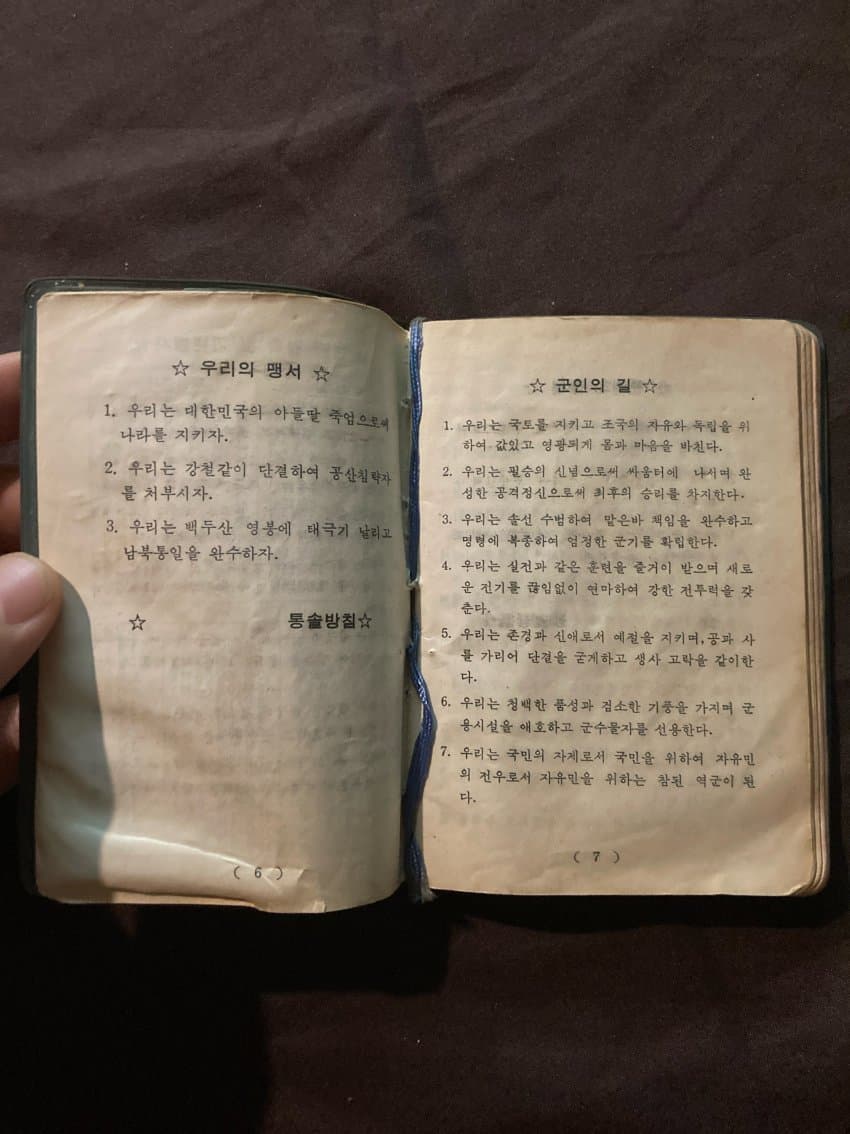 ☆ 우리의 맹서 ☆
1. 우리는 대한민국의 아들딸 죽엄으로써
나라를 지키자.
2. 우리는 강철같이 단결하여 공산침략자
를 처부시자.
3. 우리는 백두산 영봉에 태극기 날리고
남북통일을 완수하자.
☆ 통솔방침☆
( 6 )
☆ 군인의 길 ☆
1. 우리는 국토를 지키고 조국의 자유와 독립을 위
하여 값있고 영광되게 몸과 마음을 바친다.
2. 우리는 필승의 신념으로써 싸움터에 나서며 완
성한 공격정신으로써 최후의 승리를 차지한다.
3. 우리는 솔선 수범하여 맡은바 책임을 완수하고
명령에 복종하여 엄정한 군기를 확립한다.
4. 우리는 실전과 같은 훈련을 즐거이 받으며 새로
운 전기를 끊임없이 연마하여 강한 전투력을 갖
춘다.
5. 우리는 존경과 신애로서 예절을 지키며,공과 사
를 가리어 단결을 굳게하고 생사 고락을 같이한
다.
6. 우리는 청백한 품성과 검소한 기풍을 가지며 군
용시설을 애호하고 군수물자를 선용한다.
7. 우리는 국민의 자제로서 국민을 위하여 자유민
의 전우로서 자유민을 위하는 참된 역군이 된
다.
( 7 )